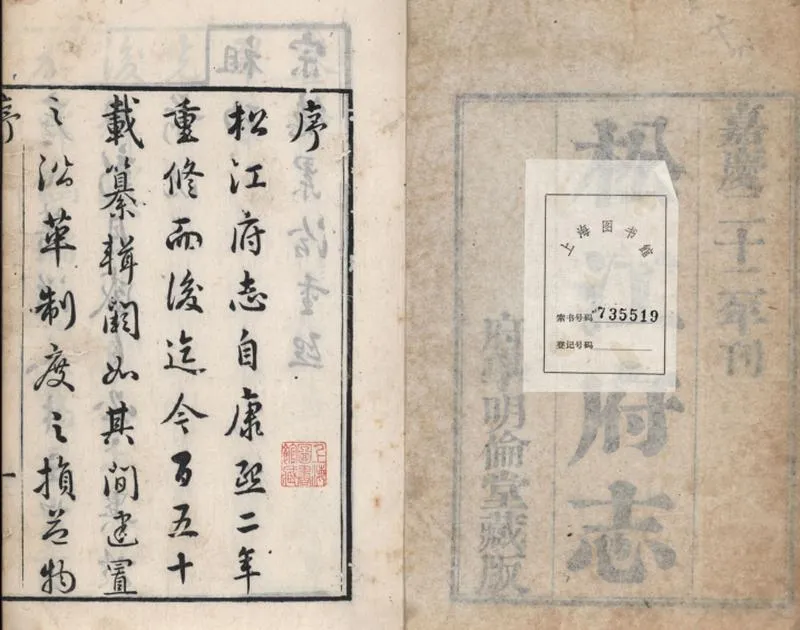 嘉慶二十二年刊
松江府志
府學明倫堂藏版
上海图书馆
索书号码 735519
登记号码
序
上海圖書館藏
松江府志自康熙二年
重修而後迄今百五十
載纂輯闕如其間建置
之沿革制度之損益物
序
一